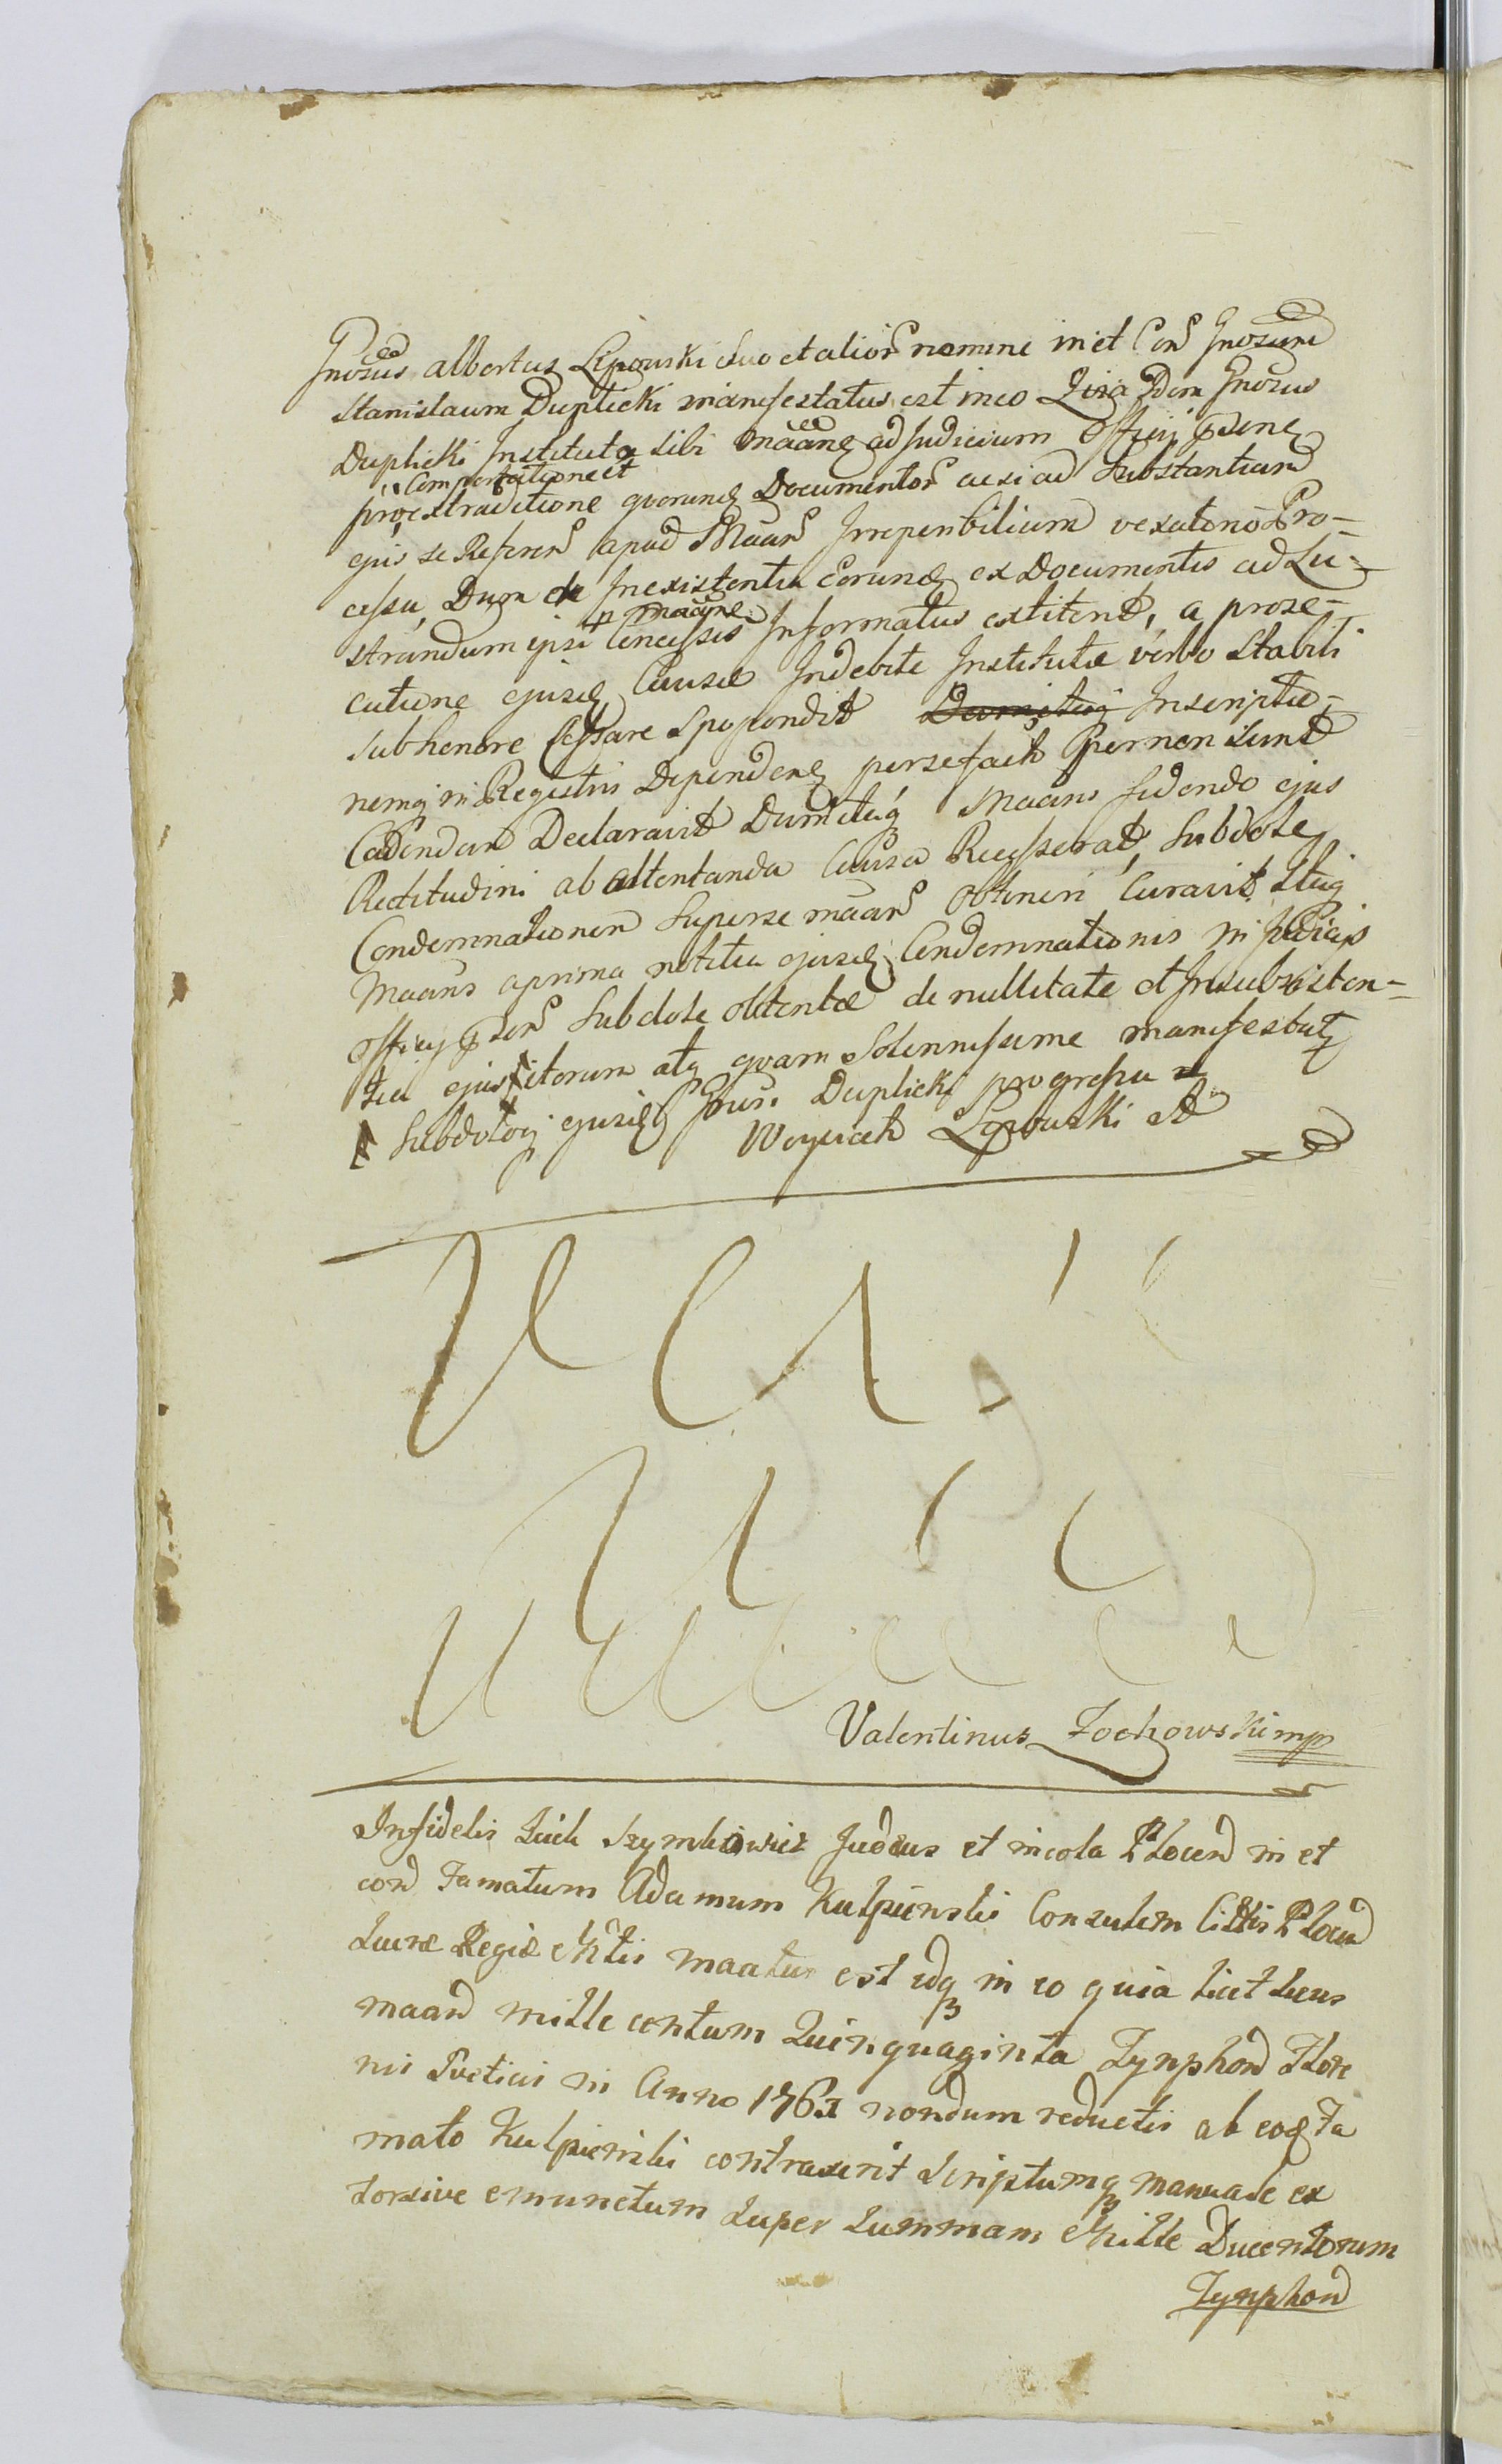 Gnosus Albertus Lipowski suo et alior nomine in et con Gnosum
Stanislaum Duplicki manifestatus est in eo Quia Idem Gnosus
Duplicki Instituto sibi maane ad Judicium Officij psene
Comportatione et
pro extraditione quorund Documentor acsi ad Substantiam
ejus se Referen apud Maan vexatorio Pro-
cessu, Dum de Inexistentia eorund ex Documentis ad Lu-
p maane
strandum ipsi Concessis Informatus extiterit, a prose-
cutione ejusd Causæ Indebite Institutæ verbo Stabili
sub honore Cessare Spopondit Dumitaq Inscriptio-
nemq in Registris Dependen per se fact per non sunt
Cadendam Declaravit Dum itaq Maans fidendo ejus
Rectitudini ab attentanda Causa Recesserat, Subdole
Condemnationem Super se maan obtineri Curavit Itaq
Maans a prima notitia ejusd Condemnationis in Judicijs
Officij psen Subdole obtentæ de nullitate et Insubsisten-
tia ejus iterum atq quam Solennissime manifestat
Subdoloq ejusd Gnsi Duplicki progressu
Woyciech Lipowski
Valentinus Zochowski mp
Infidelis Szymkowicz Judæus et incola Plocen in et
con Famatum Adamum Kulpienski Consulem Cittis Plocen
Suæ Regiæ Mtis maatur est idq in eo quia licet
maan mille centum Quinquaginta Tynphon Flore
nis in Anno 1761 nondum reductis ab eod Fa
mato Kulpienski contraxerit Scriptumq manuale ex
torsive emunctum super Summam Mille Ducentorum
Tynphon